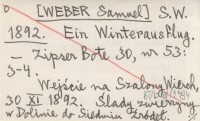 [WEBER Samuel] S.W.
1892. Ein Winterausflug.
- Zipser Bote 30, nr 53:
3-4.
Wejście na Szalony Wierch,
30 XI 1892. Ślady zwierzyny
w Dolinie do Siedmiu Źródeł.